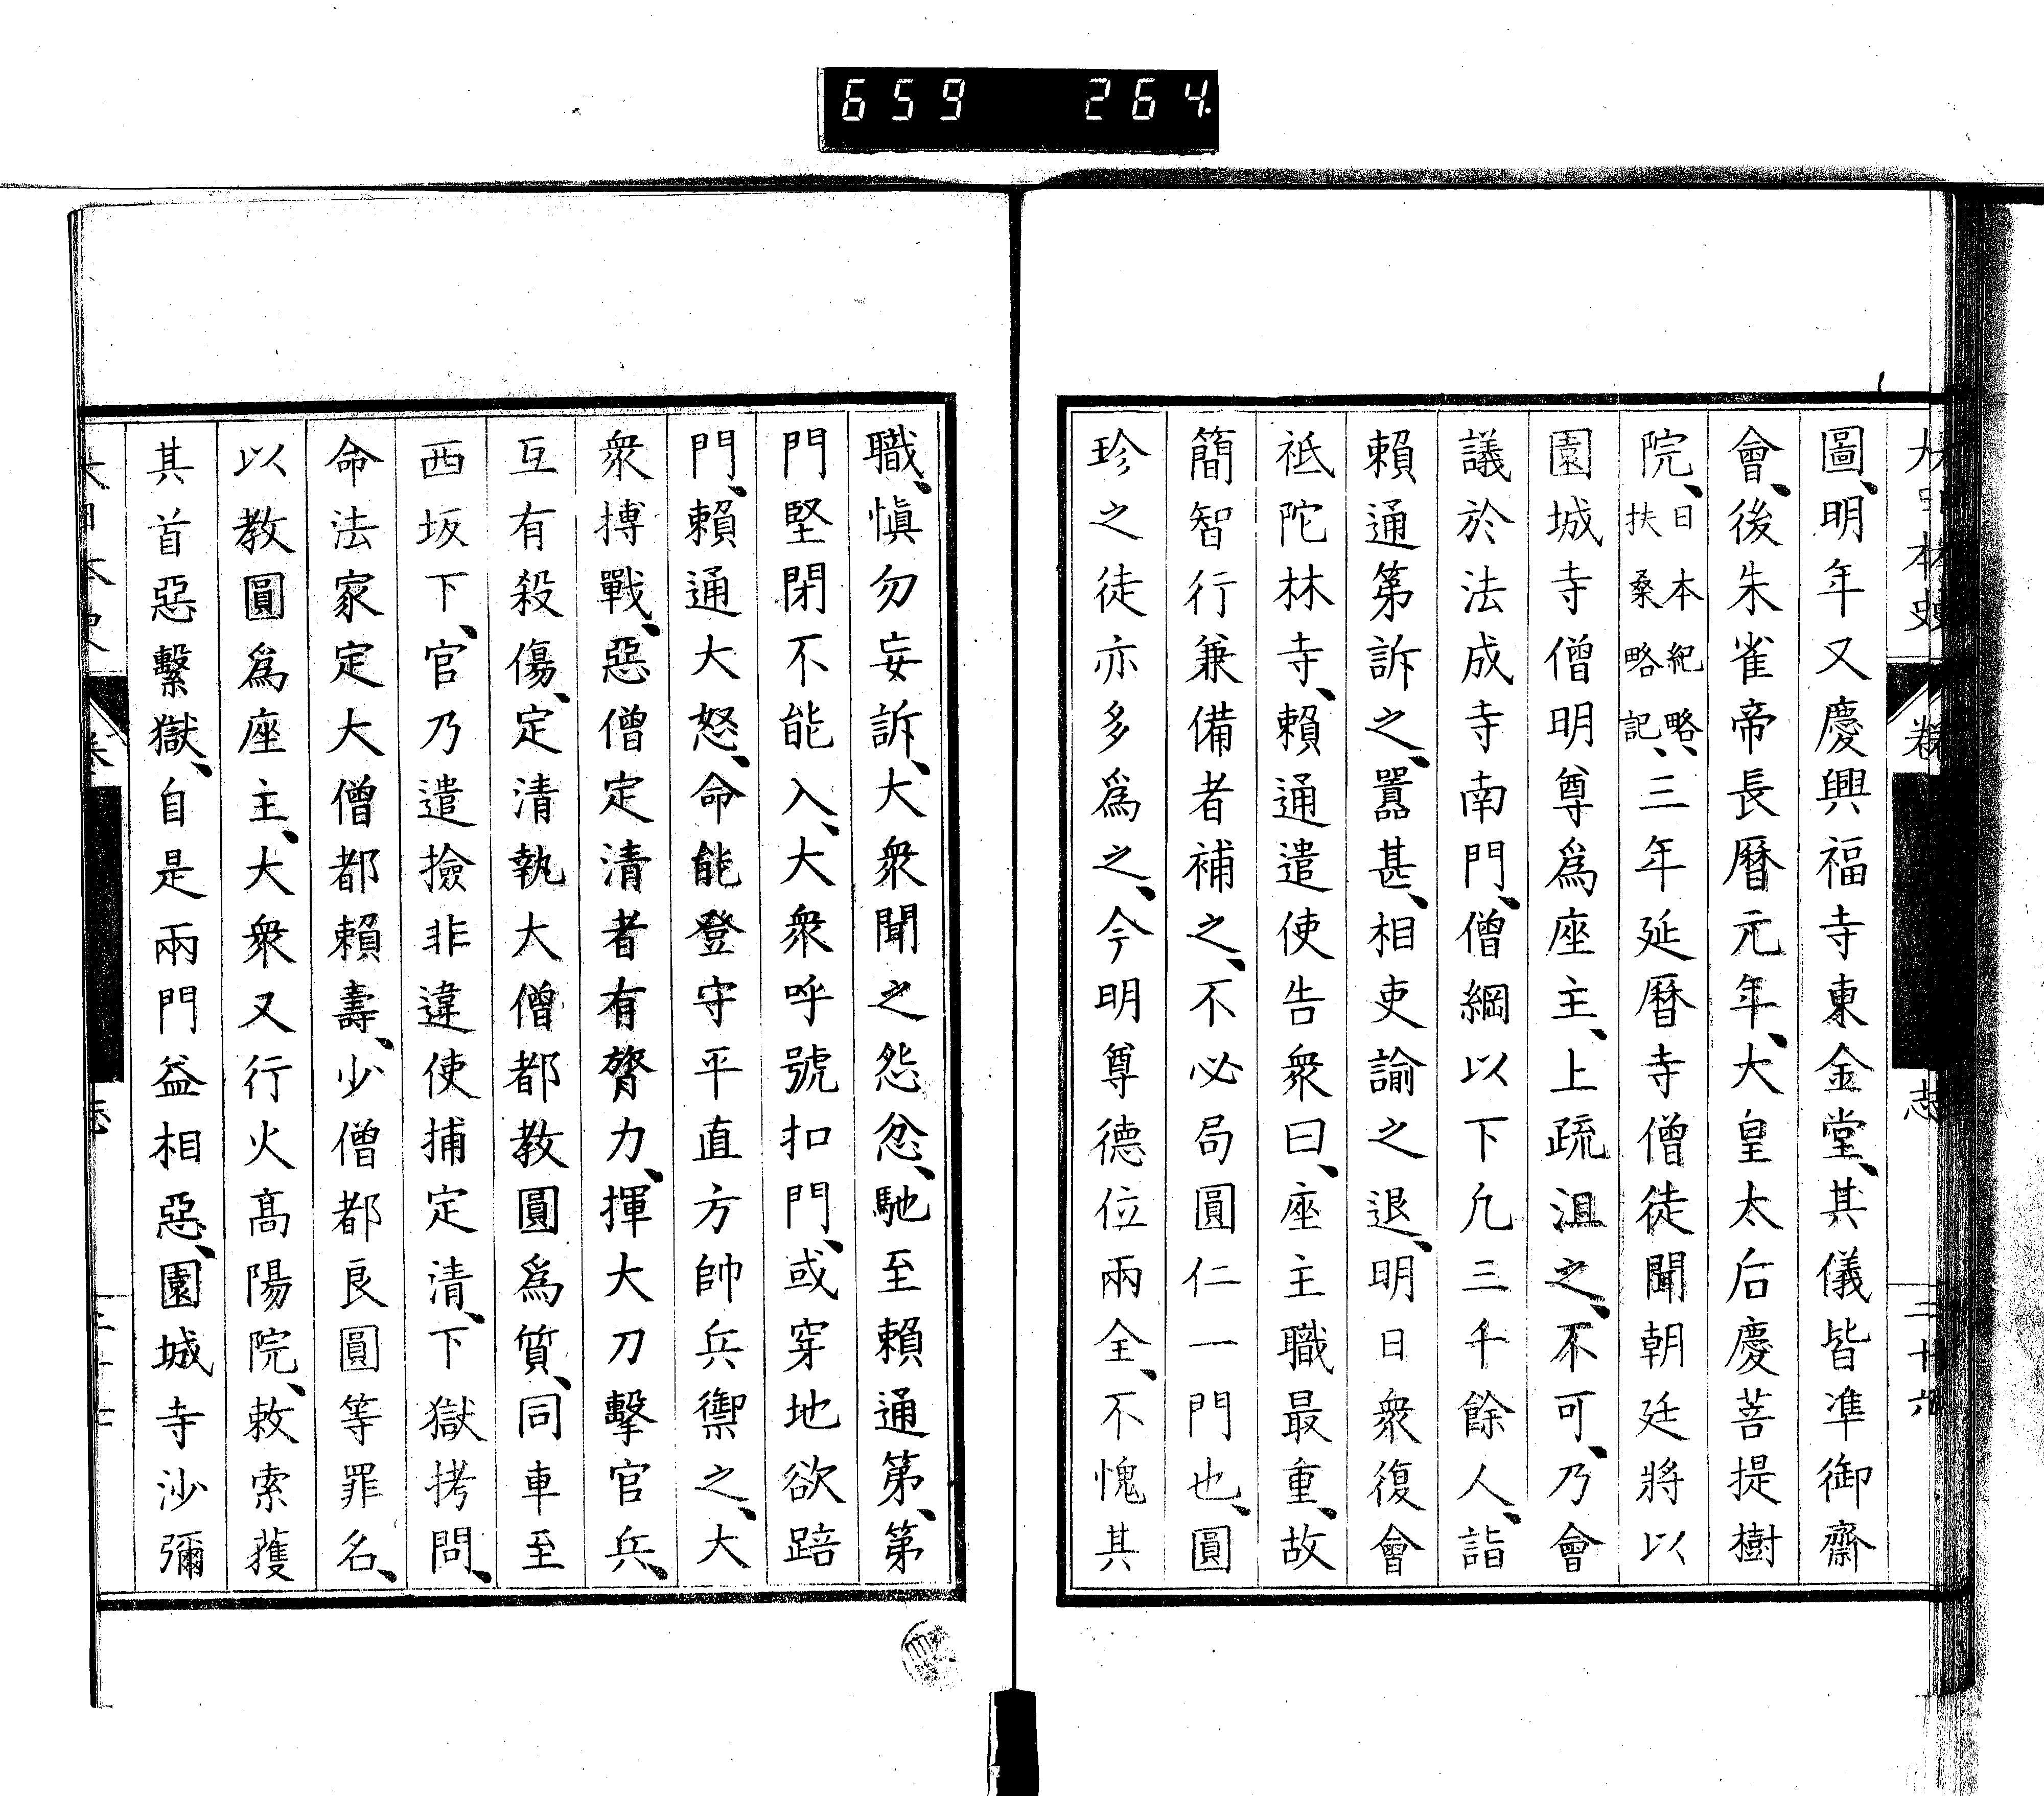 659 264
圖、明年又慶興福寺東金堂、其儀皆準御齋
會、後朱雀帝長曆元年、大皇太后慶菩提樹
院、日本紀略、扶桑略記、三年延曆寺僧徒聞朝廷將以
園城寺僧明尊爲座主、上疏沮之、不可、乃會
議於法成寺南門、僧綱以下凡三千餘人、詣
賴通第訴之、囂甚、相吏諭之退、明日衆復會
祗陀林寺、賴通遣使告衆曰、座主職最重、故
簡智行兼備者補之、不必局圓仁一門也、圓
珍之徒亦多爲之、今明尊德位兩全、不愧其
職、愼勿妄訴、大衆聞之怨忿、馳至賴通第、第
門堅閉不能入、大衆呼號扣門、或穿地欲踣
門、賴通大怒、命能登守平直方帥兵禦之、大
衆搏戰、惡僧定清者有膂力、揮大刀擊官兵、
互有殺傷、定清執大僧都教圓爲質、同車至
西坂下、官乃遣撿非違使捕定清、下獄拷問、
命法家定大僧都賴壽、少僧都良圓等罪名、
以教圓爲座主、大衆又行火高陽院、敕索獲
其首惡繫獄、自是兩門益相惡、園城寺沙彌